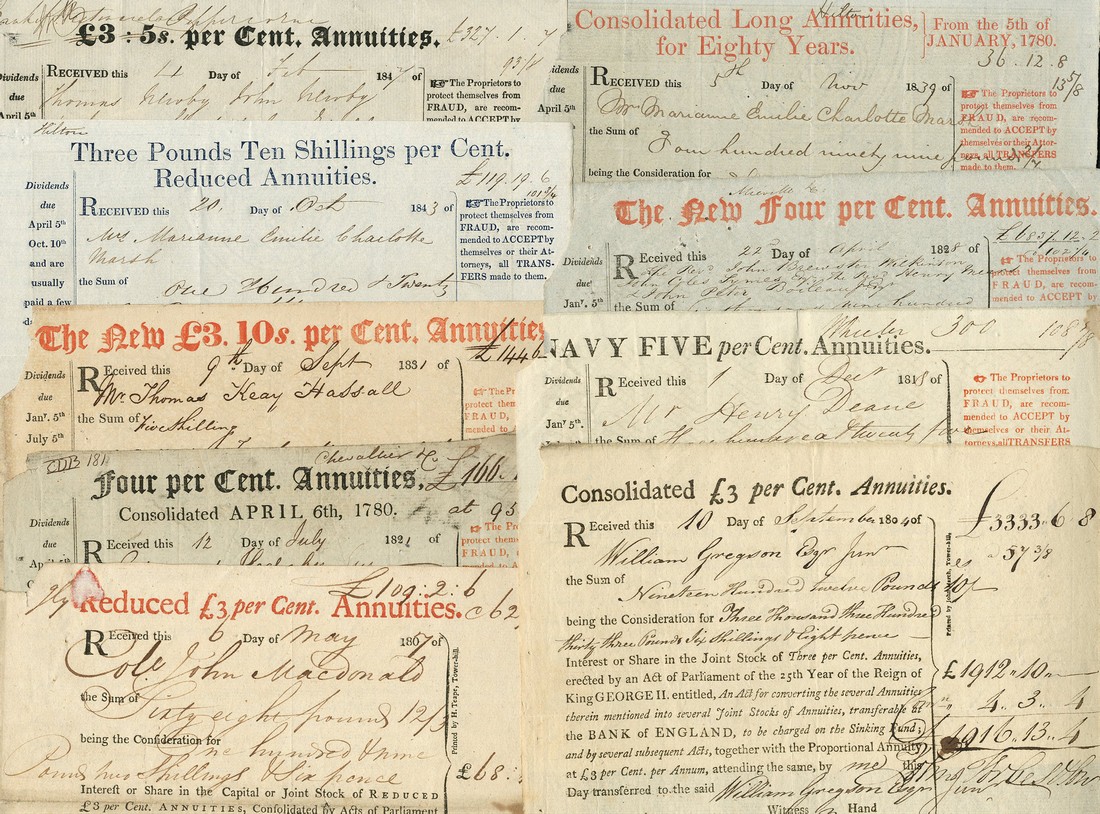 £3 : 5s. per Cent. Annuities. £327 . 1 . 7
93 1/4
Dividends
due
April 5th
RECEIVED this 11 Day of Feb 1847 of
Thomas Newby John Newby
☞ The Proprietors to
protect themselves from
FRAUD, are recom-
mended to ACCEPT by
Consolidated Long Annuities,
for Eighty Years.
From the 5th of
JANUARY, 1780.
36 . 12 . 8
13 5/8
Dividends
due
April 5th
RECEIVED this 5th Day of Nov 1839 of
Mrs Marianne Emilie Charlotte Marsh
the Sum of
Four hundred ninety nine pounds
being the Consideration for
☞ The Proprietors to
protect themselves from
FRAUD, are recom-
mended to ACCEPT by
themselves or their Attor-
neys, all TRANSFERS
made to them.
Hilton
Three Pounds Ten Shillings per Cent.
Reduced Annuities.
£119 . 19 . 6
101 3/4
Dividends
due
April 5th
Oct. 10th
and are
usually
paid a few
RECEIVED this 20 Day of Oct 1843 of
Mrs Marianne Emilie Charlotte
Marsh
the Sum of
One Hundred & Twenty
☞ The Proprietors to
protect themselves from
FRAUD, are recom-
mended to ACCEPT by
themselves or their At-
torneys, all TRANS-
FERS made to them.
The New Four per Cent. Annuities.
£6857 . 12 . 2
102 1/4
Dividends
due
Jany. 5th
Received this 22 Day of April 1828 of
The Revd John Brewster Wilkinson
& John Peter Boileau
nine hundred
☞ The Proprietors to
protect themselves from
FRAUD, are recom-
mended to ACCEPT by
The New £3. 10s. per Cent. Annuities
£1446
Dividends
due
Jany. 5th
July 5th
Received this 9th Day of Sept 1831 of
Mr Thomas Keay Hassall
the Sum of
Five Shilling
☞ The Pr
protect them
FRAUD, a
mended to A
themselves
Wheeler 300 108 7/8
NAVY FIVE per Cent. Annuities.
Dividends
due
Jany. 5th
July 5th
Received this 1 Day of Decr 1818 of
Mr Henry Deane
the Sum of Three hundred twenty five
☞ The Proprietors to
protect themselves from
FRAUD, are recom-
mended to ACCEPT by
themselves or their At-
torneys, all TRANSFERS
181
Chevallier & Co
Four per Cent. Annuities.
£166
Consolidated APRIL 6th, 1780.
at 95
Dividends
due
Received this 12 Day of July 1821 of
☞ The
protect th
FRAUD,
mended to
Consolidated £3 per Cent. Annuities.
Received this 10 Day of September 1804 of
£3333 . 6 . 8
a 57 3/8
William Gregson Esqr Junr
the Sum of
Nineteen Hundred twelve Pounds 10/-
being the Consideration for Three Thousand three Hundred
thirty three Pounds Six Shillings & Eight pence
Interest or Share in the Joint Stock of Three per Cent. Annuities,
erected by an Act of Parliament of the 25th Year of the Reign of
King GEORGE II. entitled, An Act for converting the several Annuities
therein mentioned into several Joint Stocks of Annuities, transferable at
the BANK of ENGLAND, to be charged on the Sinking Fund;
and by several subsequent Acts, together with the Proportional Annuity
at £3 per Cent. per Annum, attending the same, by me this
Day transferred to the said William Gregson Esqr Junr
Witness Hand
£1912 . 10 . —
4 . 3 . 4
1916 . 13 . 4
£109 : 2 : 6
Reduced £3 per Cent. Annuities.
@ 62
Received this 6 Day of May 1807 of
Col. John Macdonald
the Sum of
Sixty eight pounds 12/3
being the Consideration for
One hundred & nine
Pounds two Shillings & Six pence
£68
Interest or Share in the Capital or Joint Stock of REDUCED
£3 per Cent. ANNUITIES, Consolidated by Acts of Parliament
Printed by H. Teape, Tower-hill.